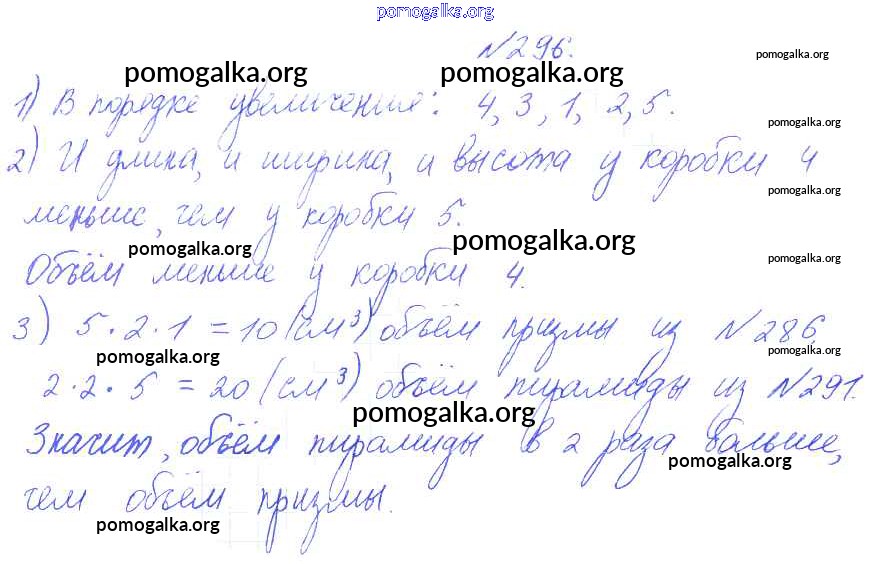 pomogalka.org
№296.
pomogalka.org
pomogalka.org pomogalka.org
1) В порядке увеличение: 4, 3, 1, 2, 5.
pomogalka.org
2) И длина, и ширина, и высота у коробки 4
pomogalka.org
меньше, чем у коробки 5.
pomogalka.org pomogalka.org
pomogalka.org
Объём меньше у коробки 4.
3) 5·2·1 = 10 (см³) объём призмы из №286.
pomogalka.org pomogalka.org
2·2·5 = 20 (см³) объём пирамиды из №291.
pomogalka.org
Значит, объём пирамиды в 2 раза больше,
pomogalka.org
чем объём призмы.
pomogalka.org